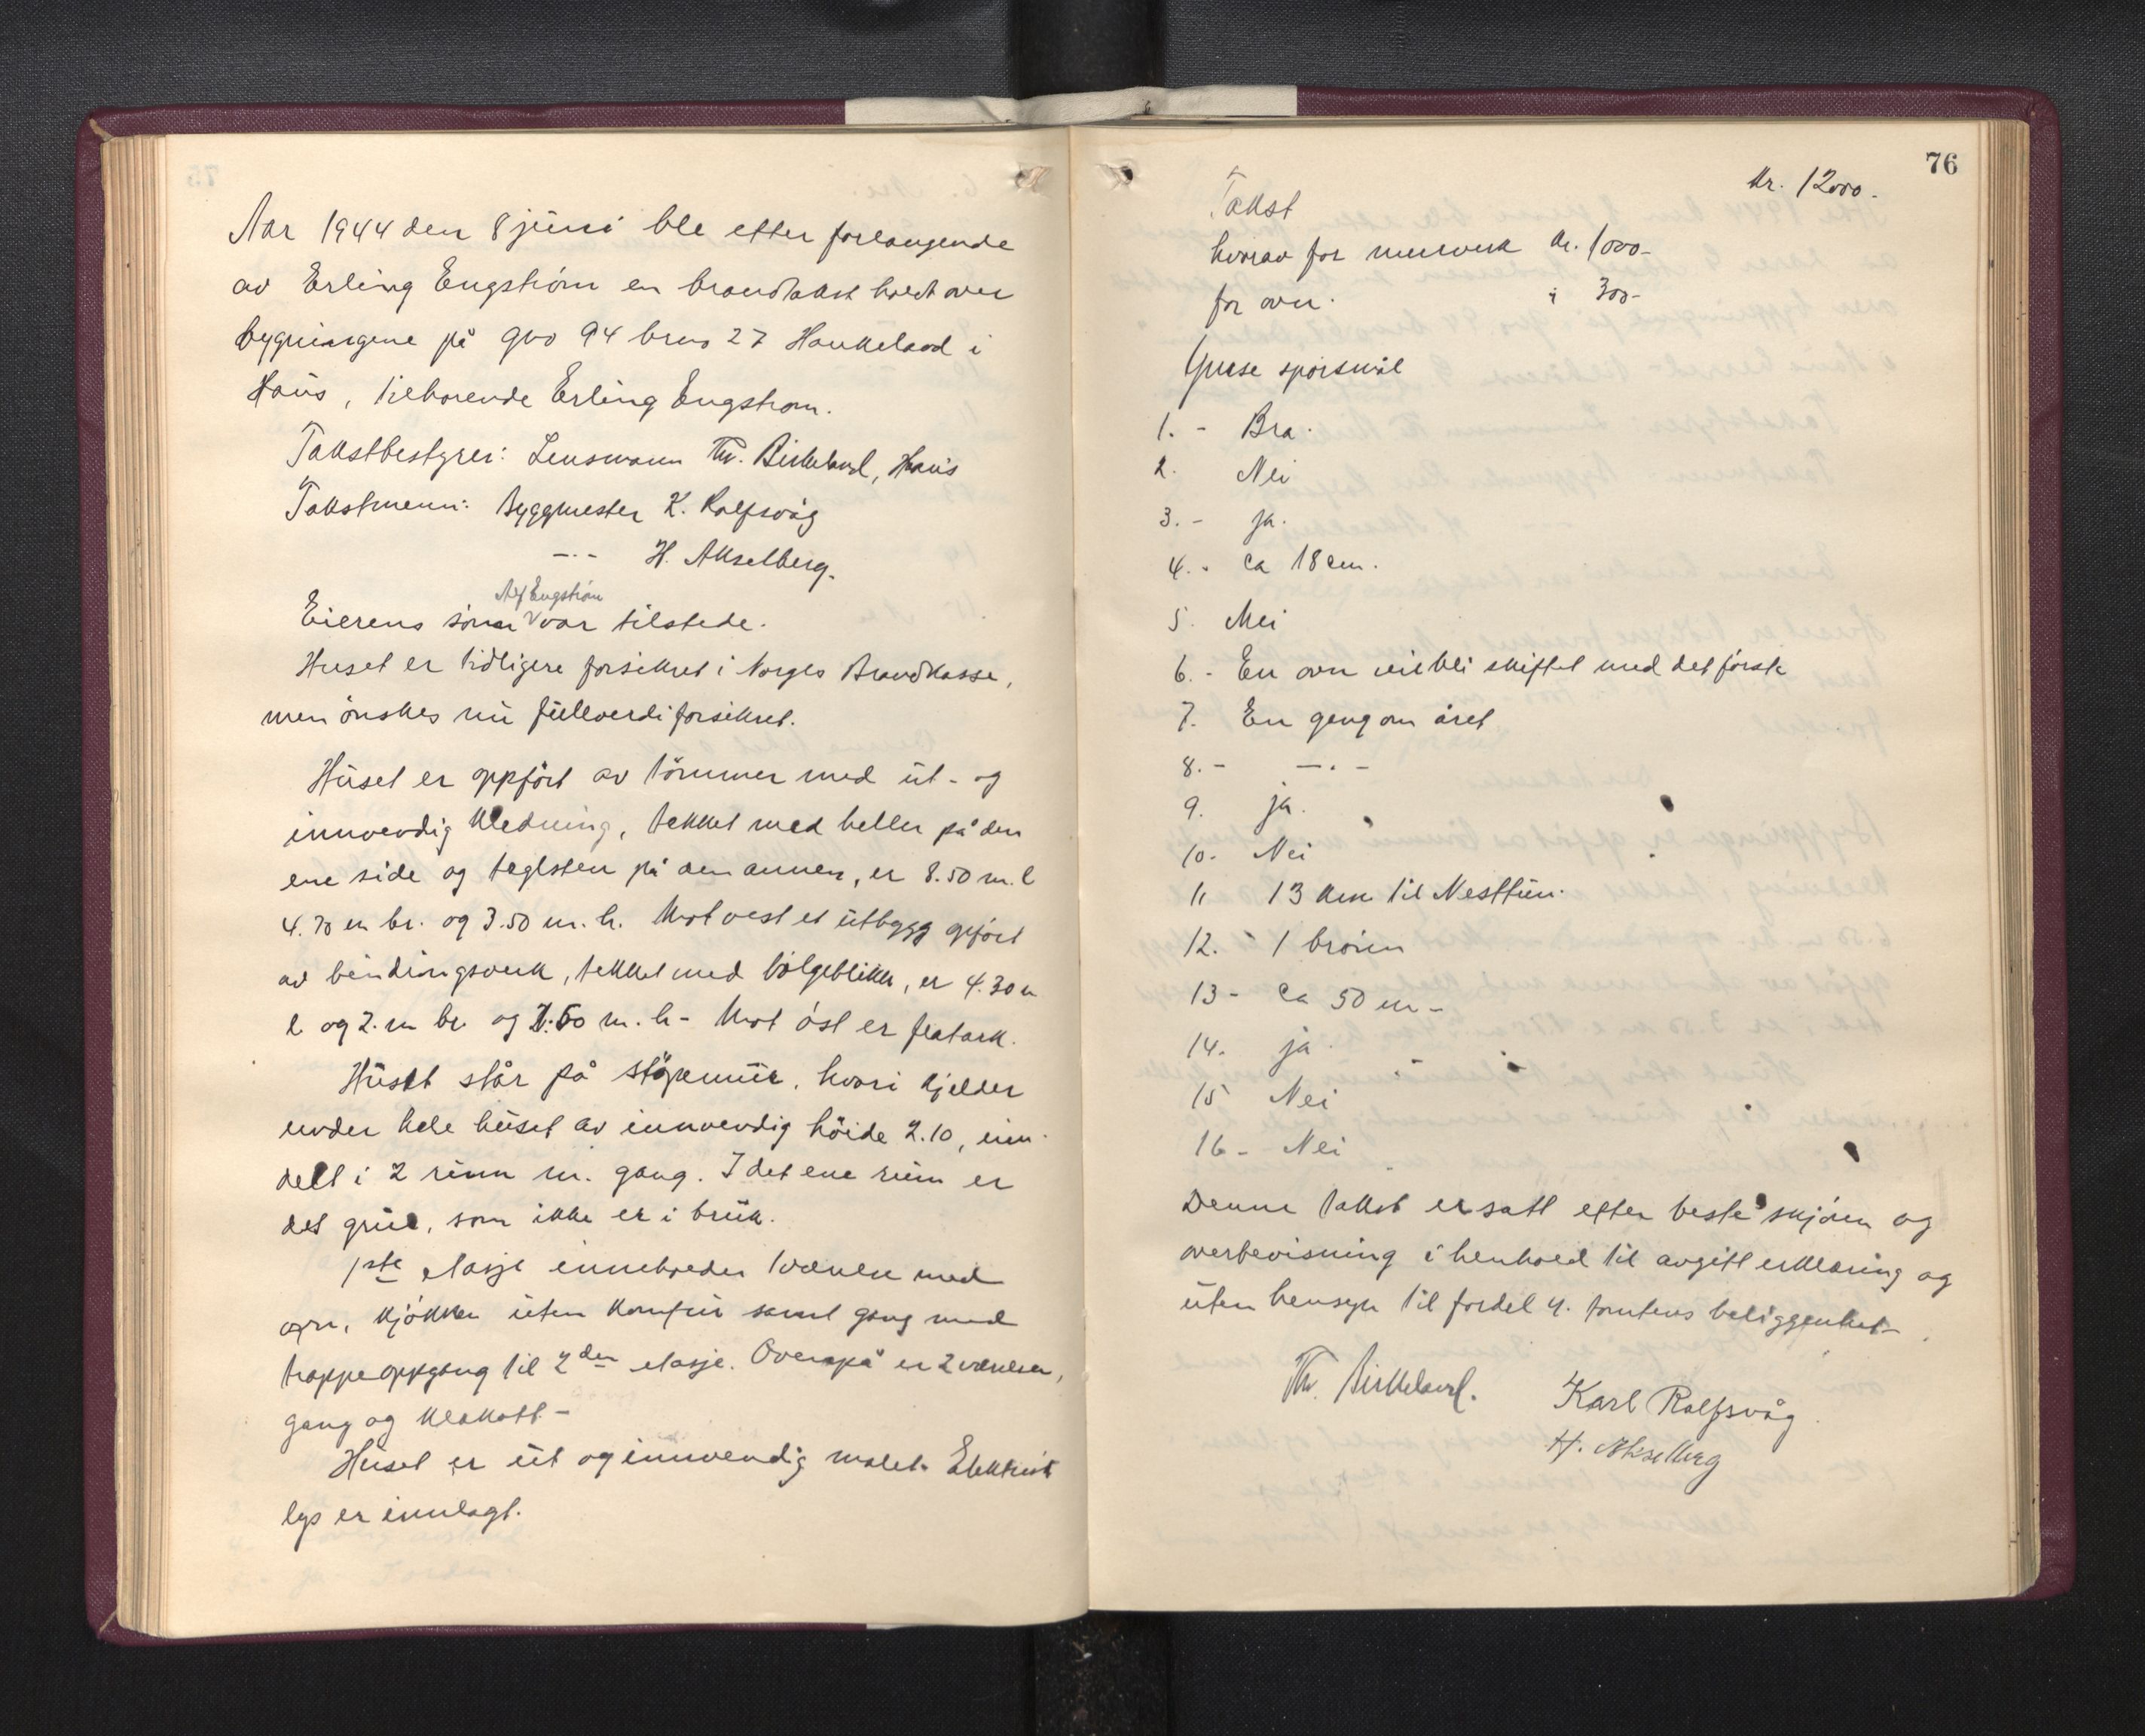 Aar 1944 den 8 juni ble efter forlangende
av Erling Engström en brandtakst holdt over
bygningene på gno 94 bruno 27 Haukeland i
Haus, tilhorende Erling Engstrom.
Takstbestyrer: Lensmann Th. Birkeland, Haus
Takstmenn: Byggmester K. Rolfsvåg
—·— H. Akselberg.
Alf Engström
Eierens sönn var tilstede.
Huset er tidligere forsikret i Norges Brandkasse,
men önskes nu fullverdiforsikret.
Huset er oppfört av tömmer med ut- og
innvendig kledning, tekket med heller på den
ene side og teglsten på den annen, er 8.50 m. l
4.70 m br. og 3.50 m. h. Mot vest et utbygg opfört
av bindingsverk, tekket med bölgeblikk, er 4.30 m
l og 2. m br og 2.50 m. h - Mot öst er flatark.
Huset står på stöpemur, hvori kjelder
under hele huset av innvendig höide 2.10, inn-
delt i 2 rum m. gang. I det ene rum er
det grue, som ikke er i bruk.
1ste etasje inneholder 1 værelse med
ovn, kjökken uten komfur samt gang med
trappeoppgang til 2den etasje. Ovenpå er 2 værelser,
gang og klekott -
Huset er ut og innvendig malet. Elektrisk
lys er innlagt.
76
Takst kr. 12000.-
hvorav for murverk kr. 1000-
for ovn. " 300-
Gruse spörsmål
1. - Bra.
2. Nei
3. - ja.
4. - ca 18 cm.
5. Nei
6. - En ovn vil bli skiftet med det förste
7. En gang om året
8. - —·—
9. ja.
10. Nei
11 13 km til Nesttun.
12. - 1 brönn
13 - ca 50 m -
14. ja
15 Nei
16 - Nei
Denne takst er satt efter beste skjönn og
overbevisning i henhold til avgitt erklæring og
uten hensyn til fordel v. tomtens beliggenhet-
Th. Birkeland. Karl Rolfsvåg
H. Akselberg